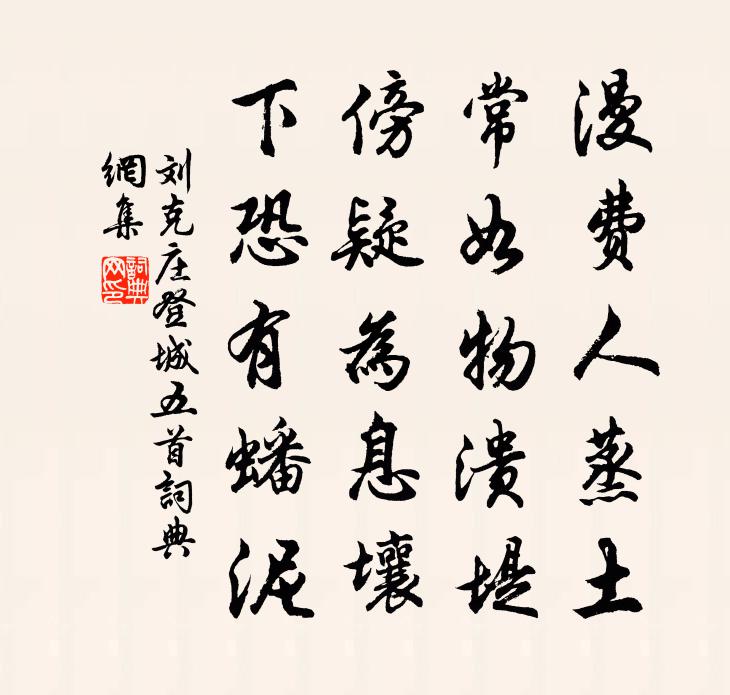 漫費人蒸土
常如物潰堤
傍疑為息壤
下恐有蟠泥
刘克庄登城五首詞典
網集
詞典網印